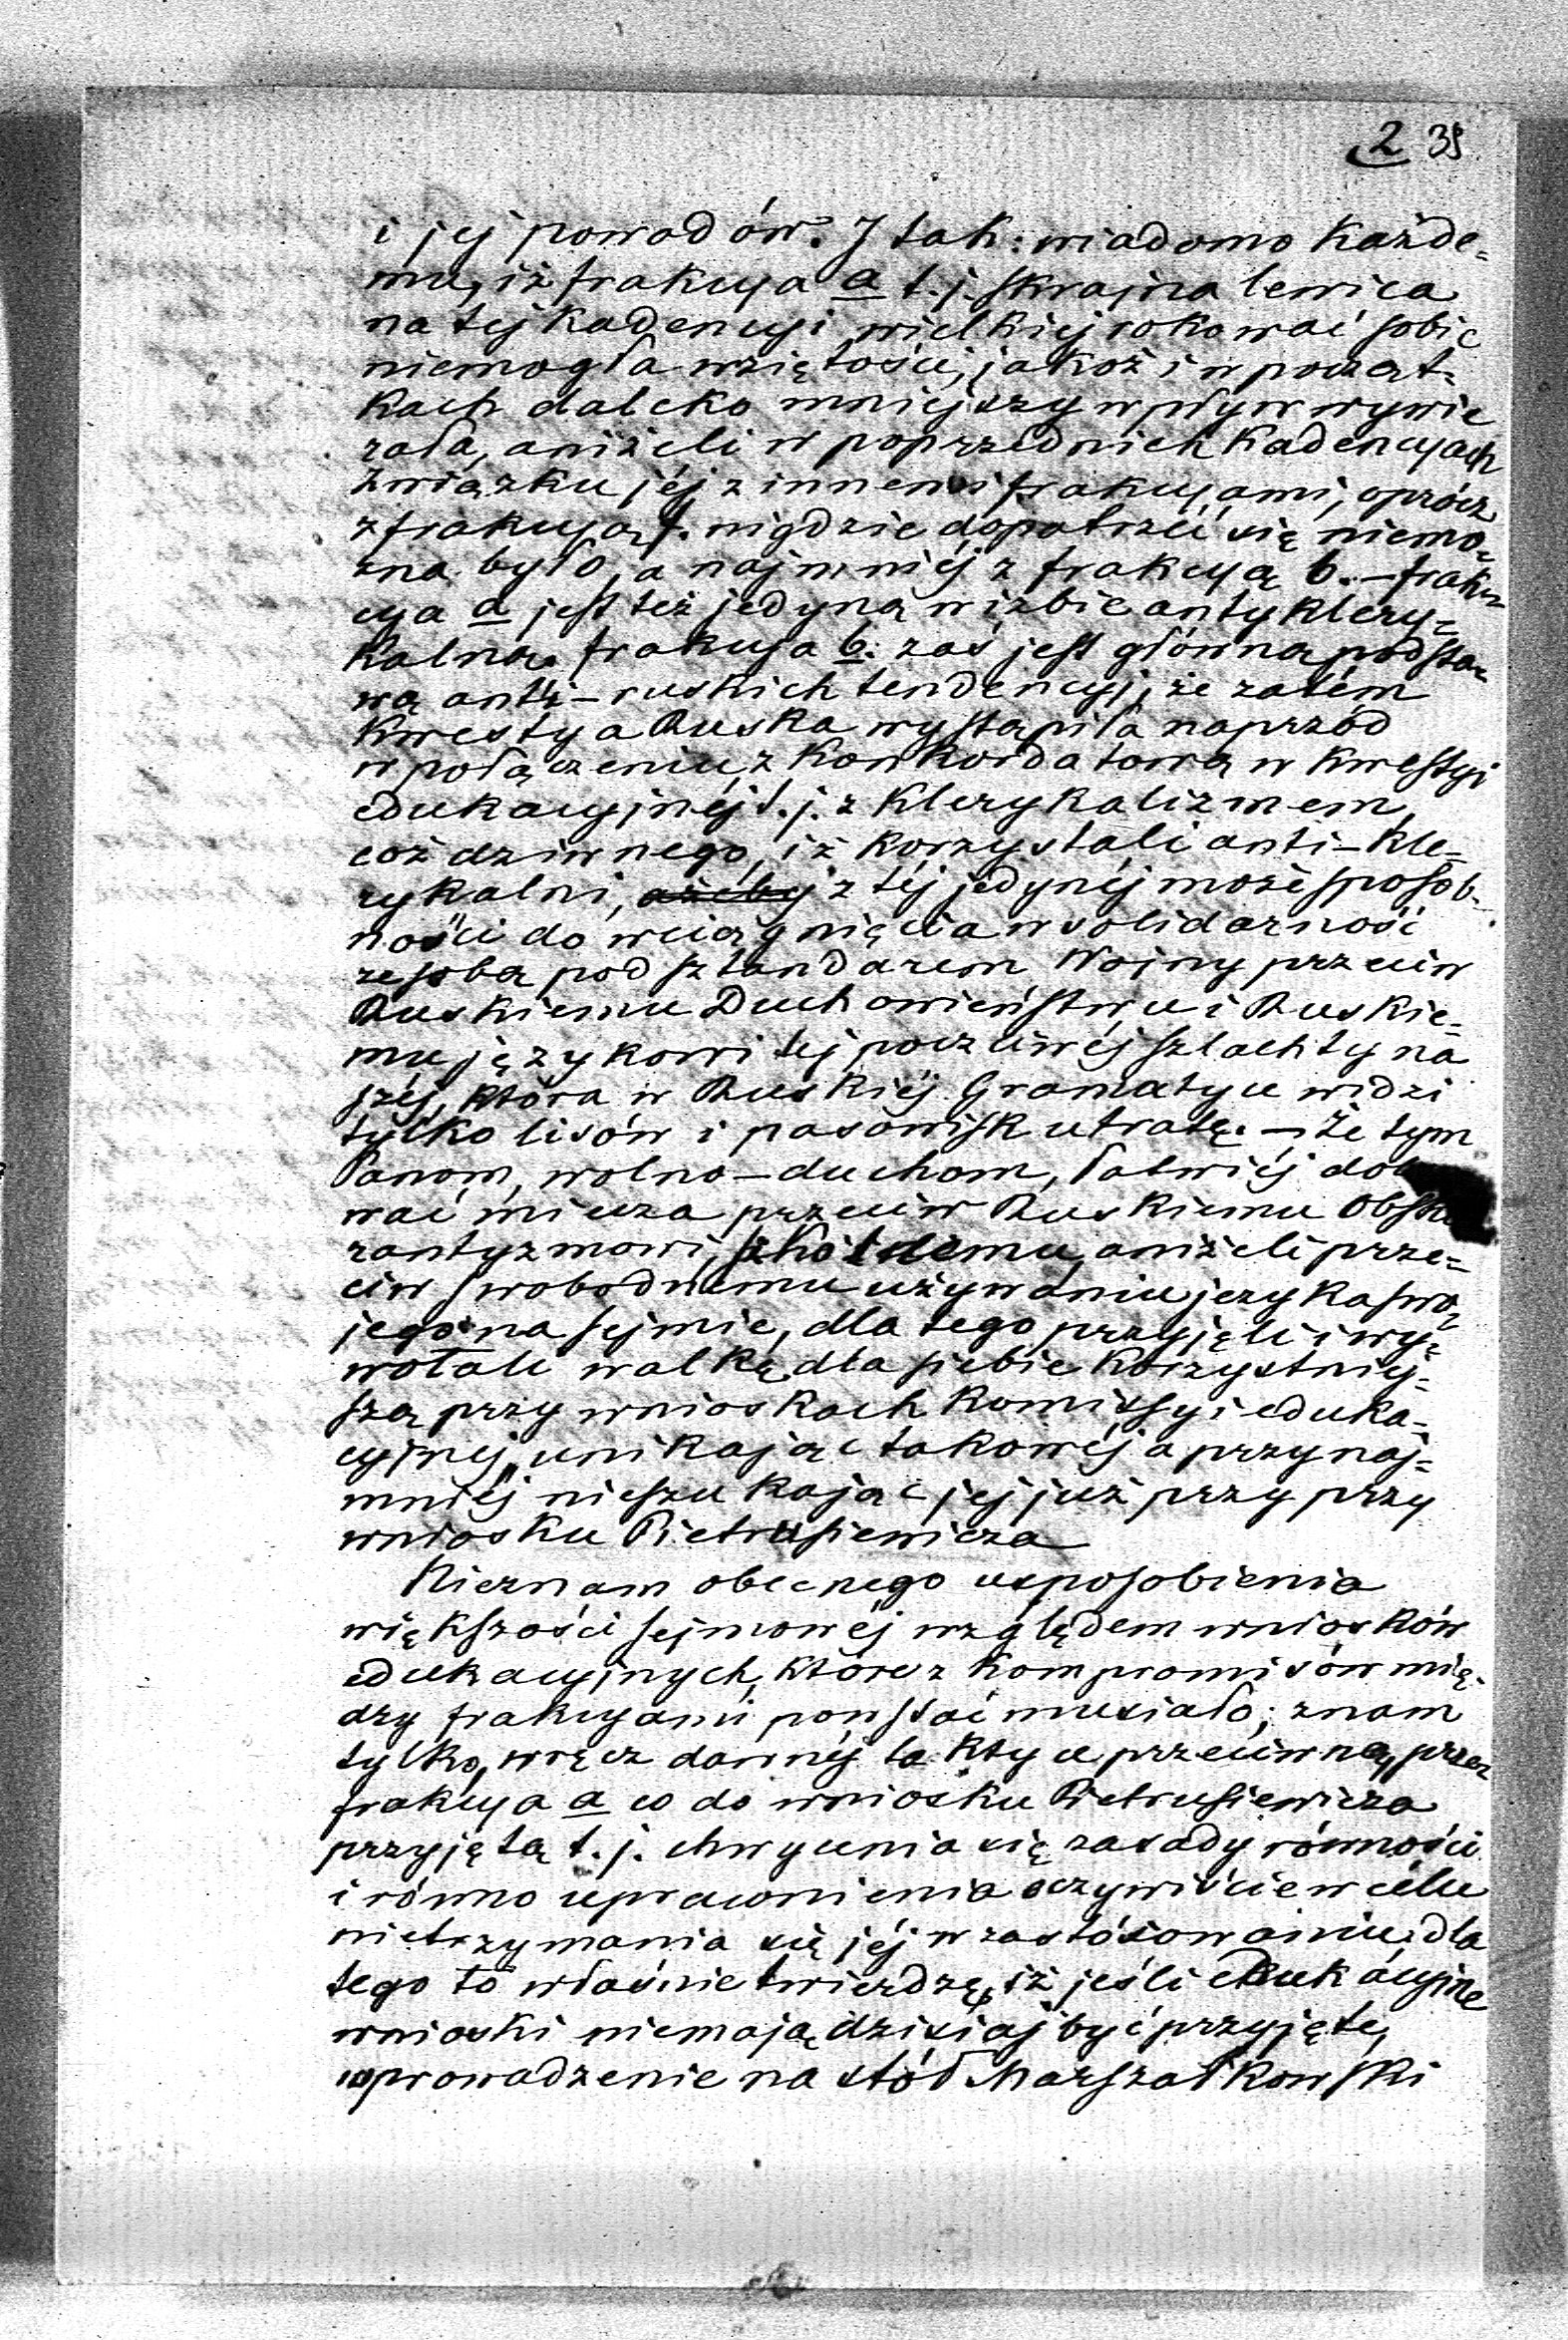 2 35
i jej powodów. I tak: wiadomo każde=
mu, iż frakcya a t.j. skrajna lewica
na tej kadencyi wielkiej rokować sobie
niemogła wziętości, jakoż i w począt=
kach daleko mniejszy wpływ wywie
rała, aniżeli w poprzednich kadencyach
Związku jéj z innemi frakcyami, oprócz
z frakcyą f. nigdzie dopatrzeć się niemo=
żna było, a najmniéj z frakcyą b. – frak=
cya a jest też jedyną w izbie antyklery=
kalną. frakcya b: zaś jest główną podsta=
wą anti–ruskich tendencyj, że zatém
Kwestya Ruska wystąpiła naprzód
w połączeniu z Konkordatową w Kwestyi
edukacyjnéj t.j. z klerykalizmem,
cóż dziwnego, iż korzystali anti–kle=
rykalni, ażeby z téj jedynéj może sposob=
ności do wciągnięcia w solidarność
ze sobą pod sztandarem Wojny przeciw
Ruskiemu Duchowieństwu i Ruskie=
mu językowi tej poczciwéj szlachty na
széj, która w Ruskiéj Gramatyce widzi
tylko lisów i pasowisk utratę. – Że tym
Panom, wolno–duchom, łatwiéj
wać miecza przeciw Ruskiemu
rantyzmowi, aniżeli prze=
ciw swobodnemu używaniu języka swo=
jego na sejmie, dla tego przyjęli i wy=
wołali walkę dla siebie korzystniej=
szą przy wnioskach Komissyi eduka=
cyjnej, unikając takowéj a przynaj=
mniéj nieszukając jej już przy przy
wniosku Pietrusiewicza
Nieznam obecnego usposobienia
większości sejmowéj względem wniosków
edukacyjnych, które z kompromisów mię=
dzy frakcyami powstać musiało; znam
tylko, wręcz dawnéj taktyce przeciwną, przez
frakcya a co do wniosku Pietrusiewicza
przyjętą t.j. chwycenia się zasady równości
i równo uprawnienia oczywiście w celu
nietrzymania się jéj w zastósowaniu, dla
tego to właśnie twierdzę, iż jeśli edukacyjne
wnioski niemają dzisiaj być przyjęte,
wprowadzenie na stół Marszałkowski